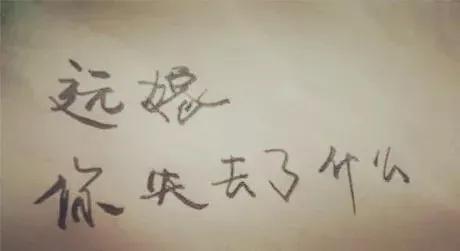 远婚
你失去了什么